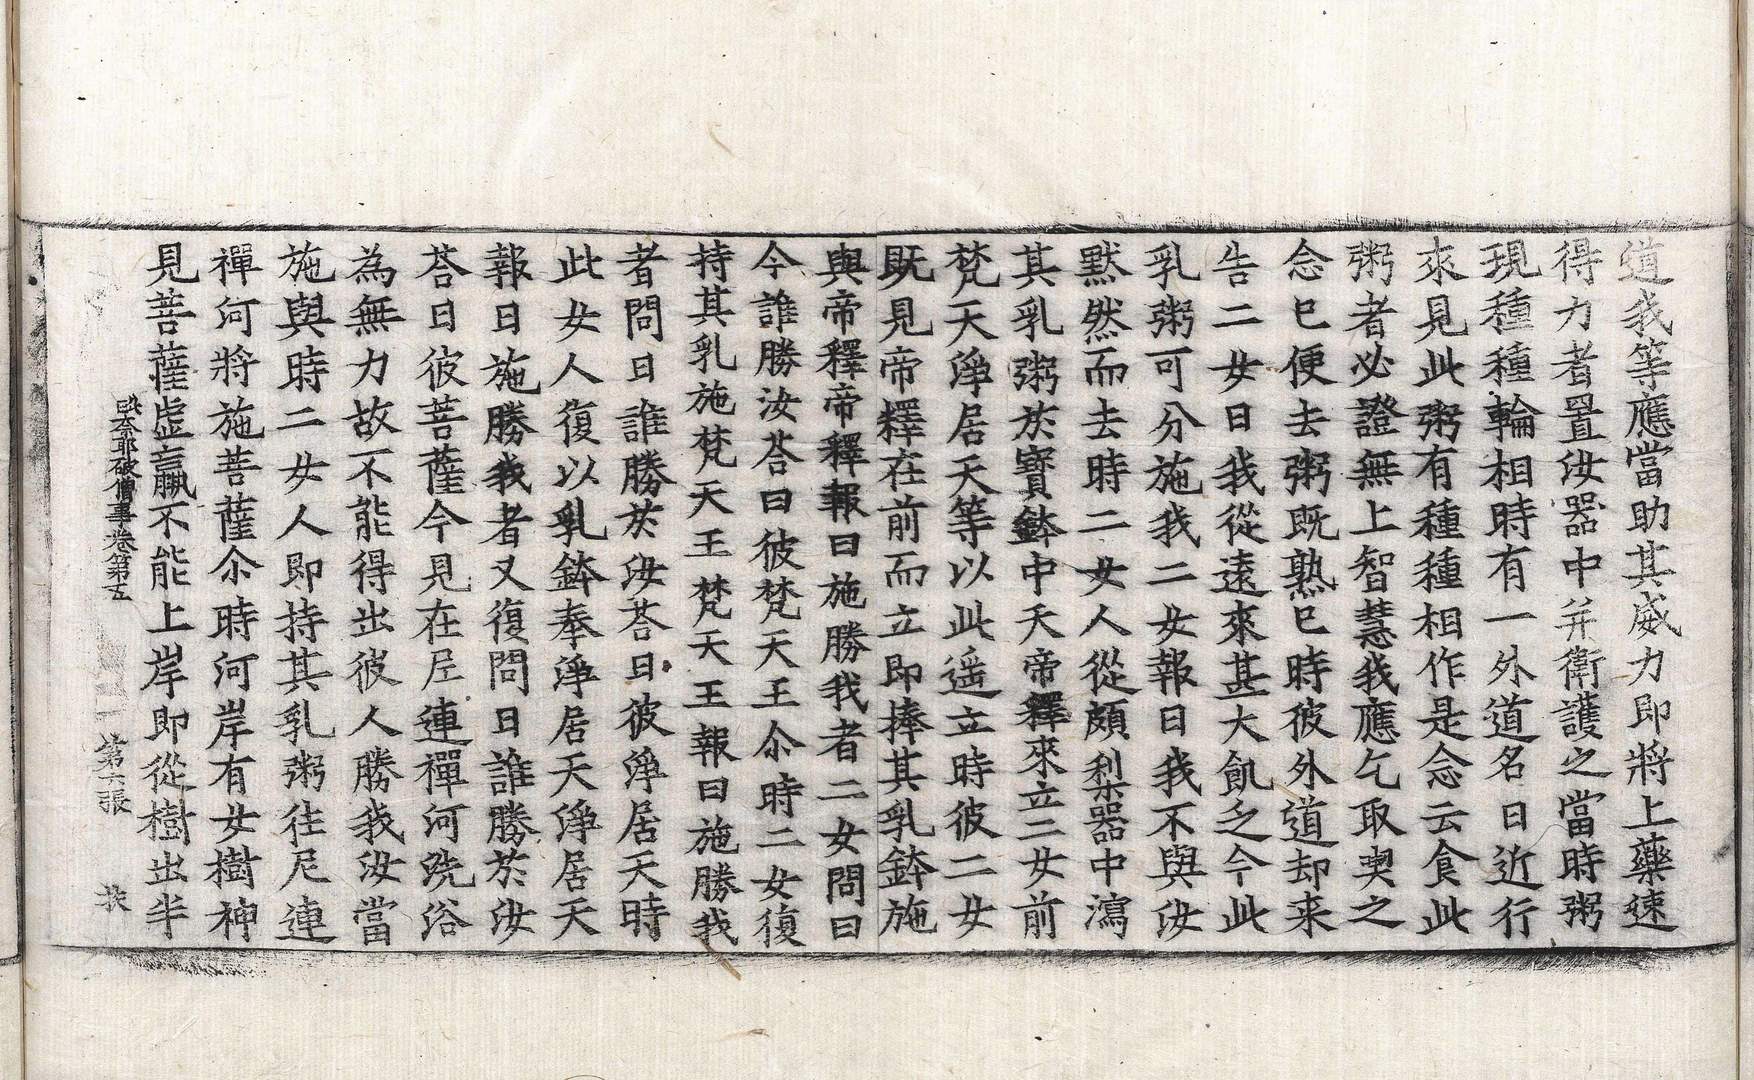 道我等應當助其威力即將上藥速
得力者置汝器中并衛護之當時粥
現種種輪相時有一外道名曰近行
來見此粥有種種相作是念云食此
粥者必證無上智慧我應乞取喫之
念已便去粥既熟已時彼外道却来
告二女曰我從遠來甚大飢乏今此
乳粥可分施我二女報曰我不與汝
默然而去時二女人從頗梨器中瀉
其乳粥於寶鉢中天帝釋來立二女前
梵天淨居天等以此遥立時彼二女
既見帝釋在前而立即捧其乳鉢施
與帝釋帝釋報曰施勝我者二女問曰
今誰勝汝荅曰彼梵天王尒時二女復
持其乳施梵天王梵天王報曰施勝我
者問曰誰勝於汝荅曰彼淨居天時
此女人復以乳鉢奉淨居天淨居天
報曰施勝我者又復問曰誰勝於汝
荅曰彼菩薩今見在尼連禪河洗浴
為無力故不能得出彼人勝我汝當
施與時二女人即持其乳粥往尼連
禪河將施菩薩尒時河岸有女樹神
見菩薩虛羸不能上岸即從樹出半
毗奈耶破僧事卷第五 第六張